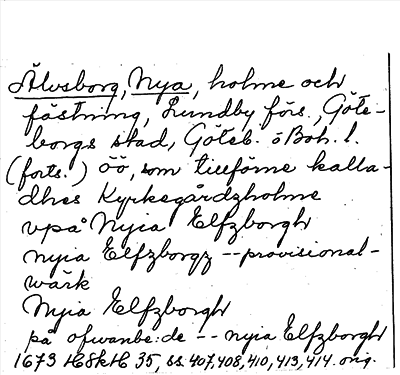 Älvsborg, Nya, holme och
fästning, Lundby förs., Göte-
borgs stad, Göteb. o Boh. l.
(forts.) öö, som tillförne kalla-
dhes Kyrkegårdzholme
vpå Nyia Elfzborgh
nyia Elfzborgz -- provisional-
wärk
Nyia Elfzborgh
på ofwanbe:de -- nyia Elfzborgh
1673 HSkH 35, ss. 407, 408, 410, 413, 414. orig.